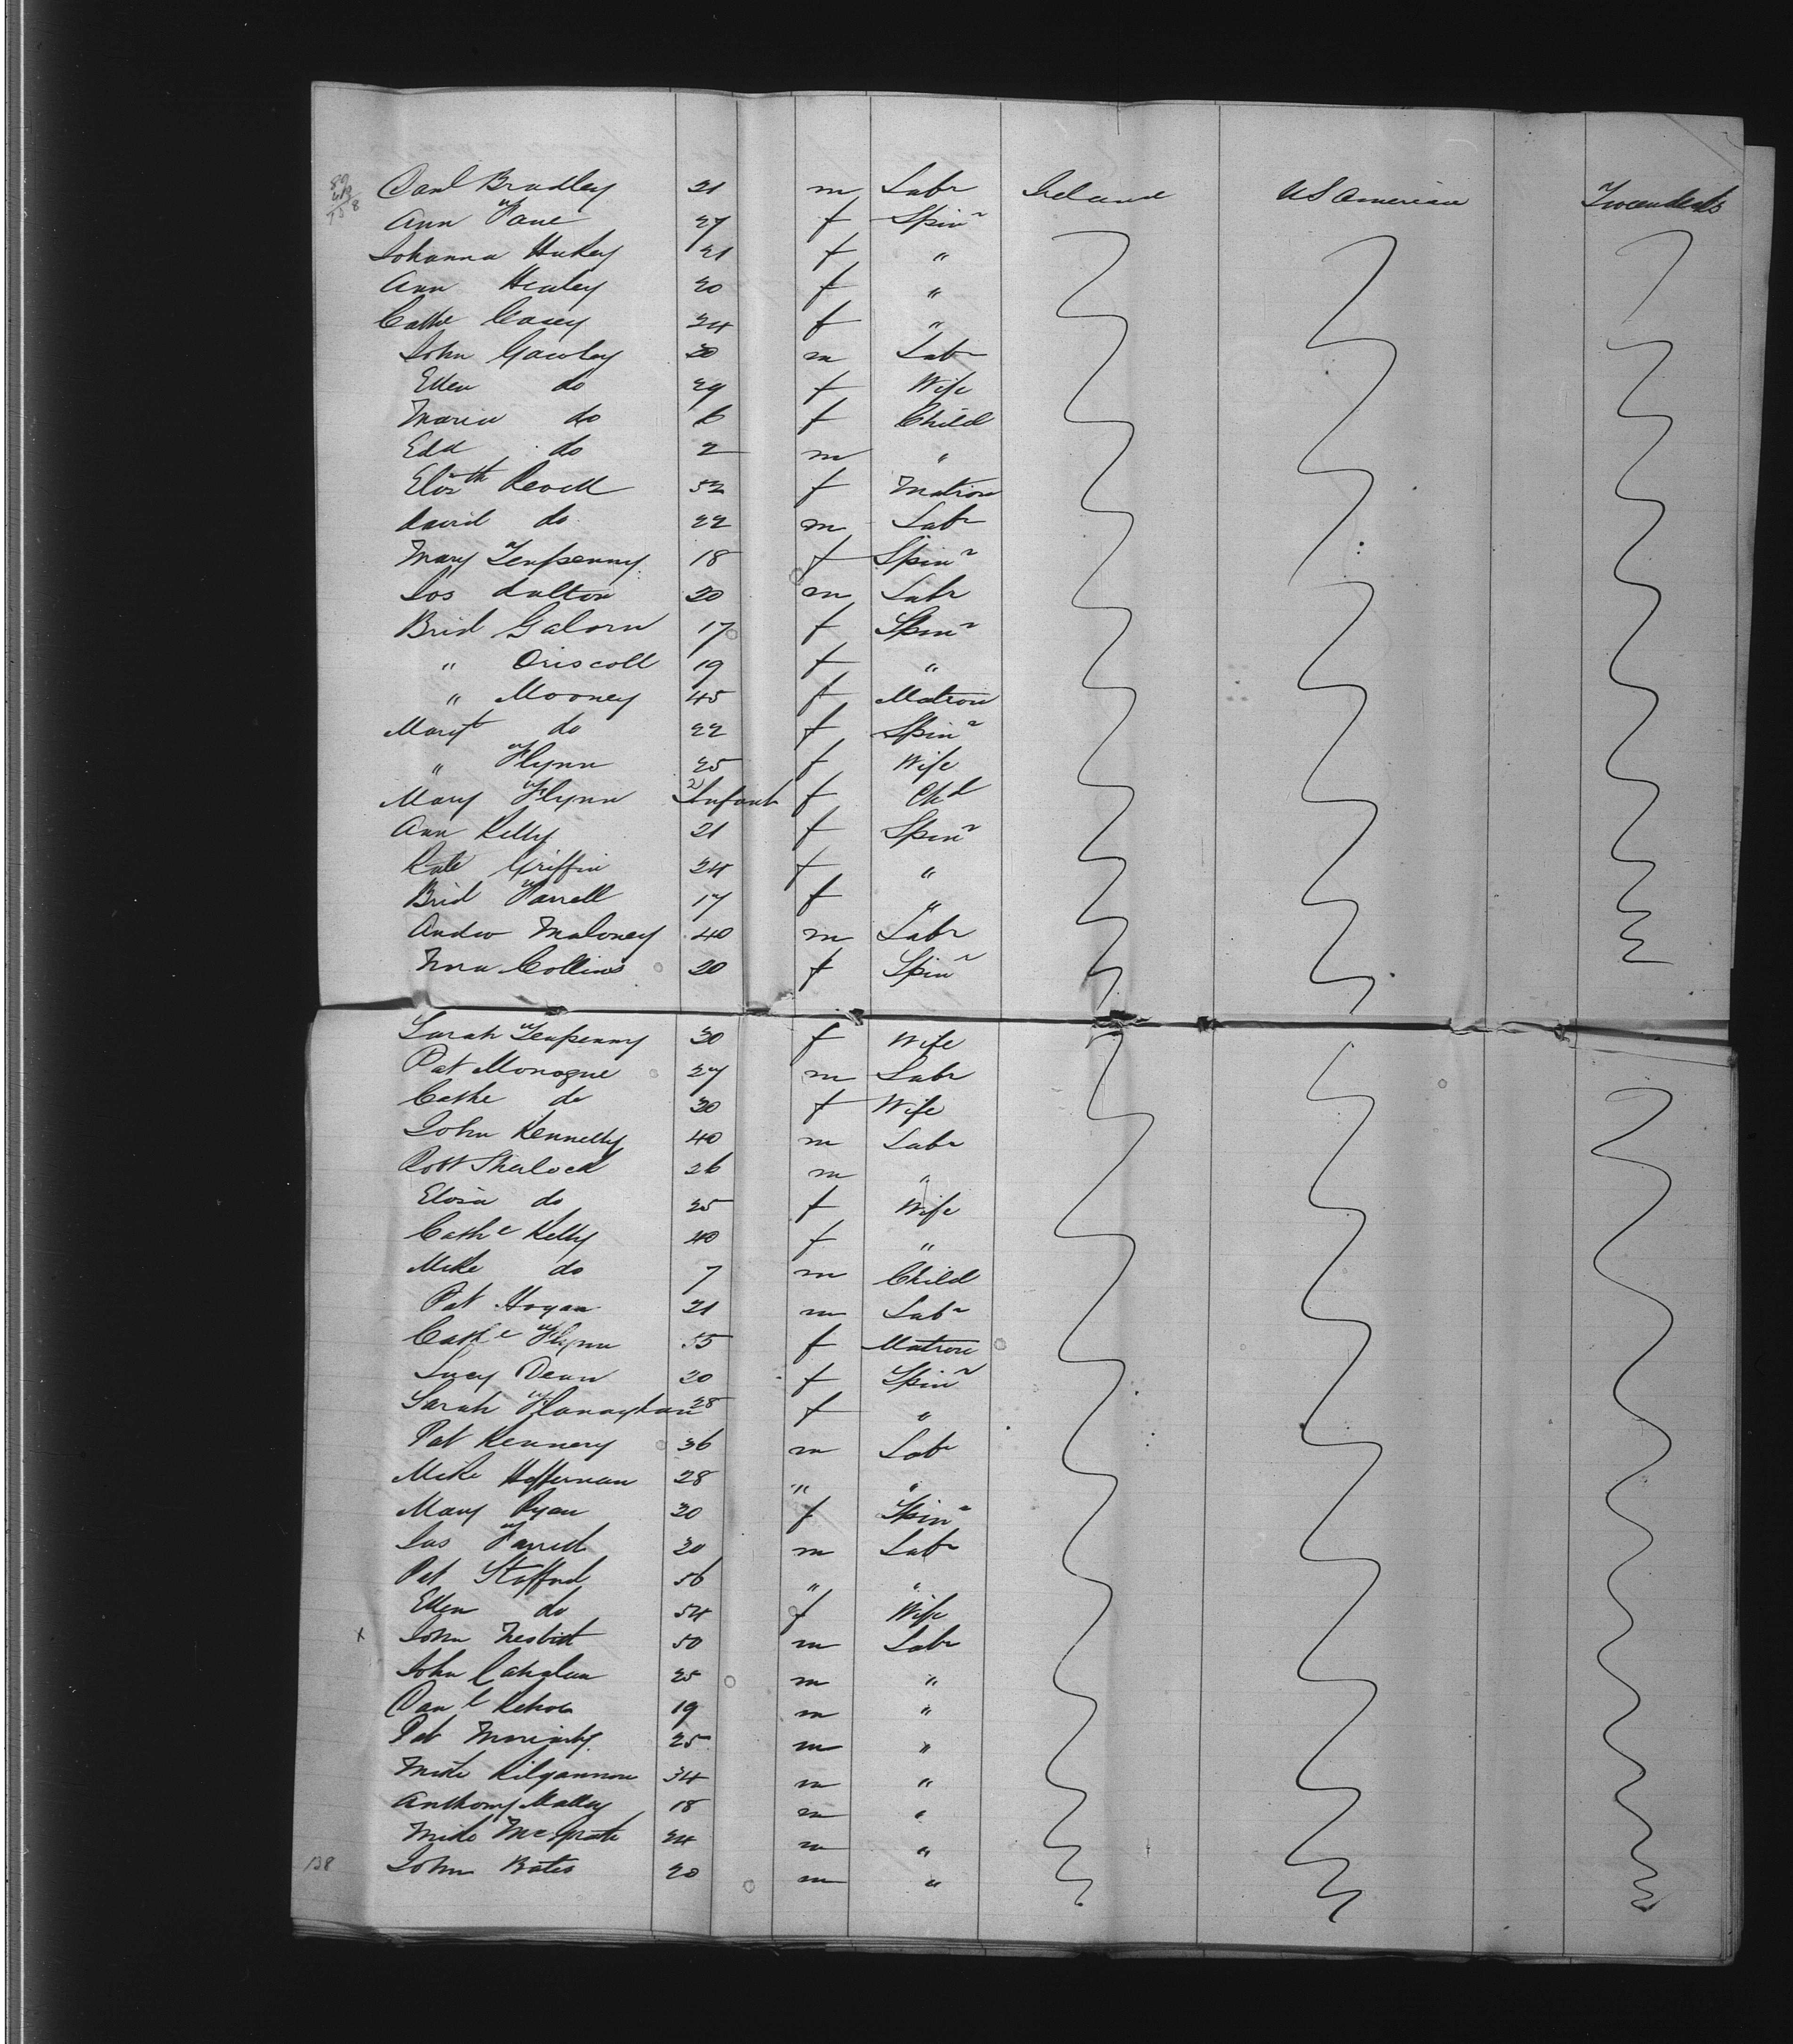 Danl Bradley 21 m Labr Ireland US America
Ann Fane 27 f Spinr
Johanna Hukey 21 f "
Ann Healey 20 f "
Cathe Casey 24 f "
John Gawley 30 m Labr
Ellen do 29 f Wife
Maria do 6 f Child
Edd do 2 m "
Elizth Revell 52 f Matron
David do 22 m Labr
Mary Tenpenny 18 f Spinr
Jos Dalton 20 m Labr
Brid Galorn 17 f Spinr
" Driscoll 19 f "
" Mooney 45 f Matron
Margt do 22 f Spinr
" Flynn 25 f Wife
Mary Flynn Infant f Chd
Ann Kelly 21 f Spinr
Kate Griffin 24 f "
Brid Farrell 17 f "
Andw Maloney 40 m Labr
Nora Collins 20 f Spinr
Sarah Tenpenny 30 f Wife
Pat Monogue 27 m Labr
Cathe do 30 f Wife
John Kennelly 40 m Labr
Robt Sherlock 26 m "
Eliza do 25 f Wife
Cathe Kelly 40 f "
Mike do 7 m Child
Pat Hogan 21 m Labr
Cathe Flynn 55 f Matron
Lucy Dean 20 f Spinr
Sarah Flanaghan 28 f "
Pat Kennery 36 m Labr
Mike Heffernan 28 " "
Mary Ryan 30 f Spinr
Jas Farrell 20 m Labr
Pat Stafford 56 " "
Ellen do 54 f Wife
x John Nesbitt 50 m Labr
John Caughlan 25 m "
Danl Kehoe 19 m "
Pat Moriarty 25 m "
Mike Kilgannon 34 m "
Anthony Malley 18 m "
Mike McGrath 24 m "
138 John Bates 20 m "